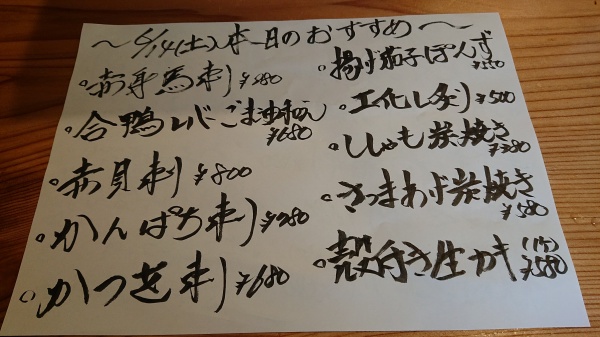 ～6/14(土)本日のおすすめ～
○赤身馬刺 ¥980
○合鴨レバーごま油和え ¥680
○赤貝刺 ¥800
○かんぱち刺 ¥980
○かつを刺 ¥680
○揚げ茄子ぽんず ¥550
○エイヒレ炙り ¥500
○ししゃも炭焼き
○さつまあげ炭焼き ¥580
○殻付き生カキ(1ケ) ¥580